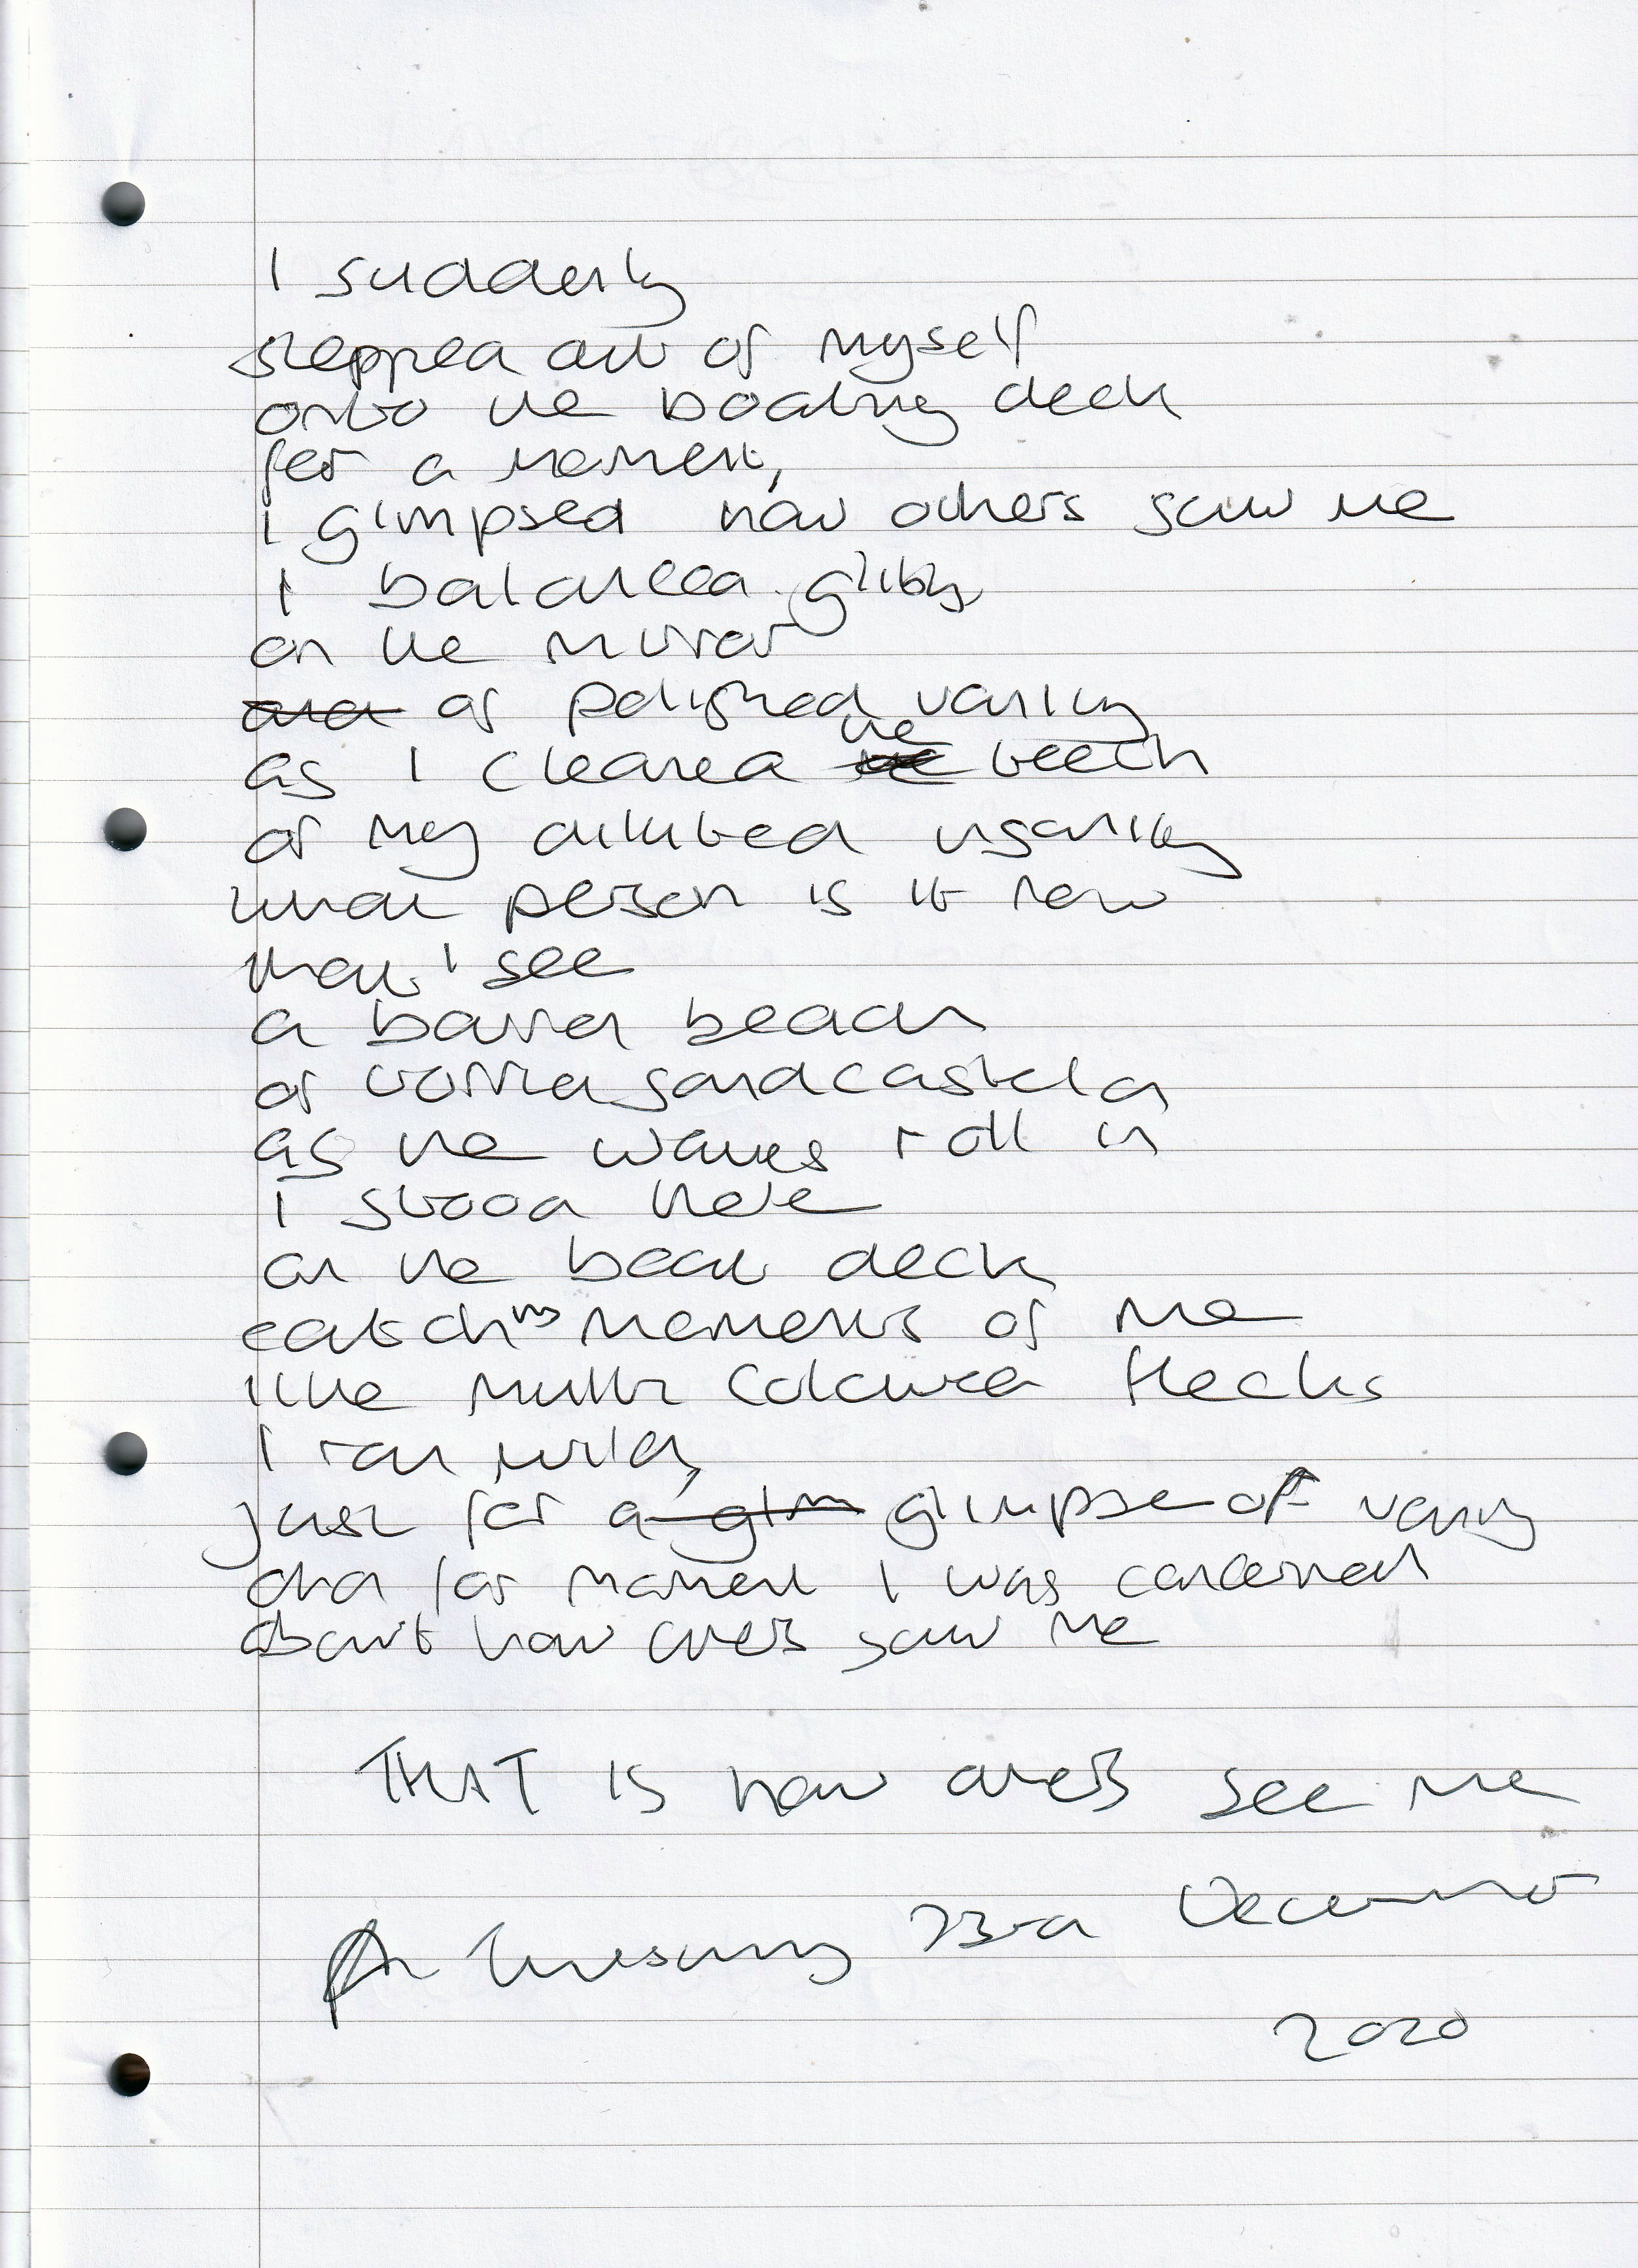 I suddenly
stepped out of myself
onto the boating deck
for a moment,
I glimpsed how others saw me
I balanced glibly
on the mirror
and of polished vanity
as I cleaned the the teeth
of my diluted
what person is it now
that I see
a barren beach
of sandcastle
as the waves roll in
I stood there
on the boat deck
catching moments of me
like multi coloured flecks
I ran wild,
just for a glim glimpse of vanity
and for moment I was concerned
about how others saw me
THAT is how others see me
23rd December
2020